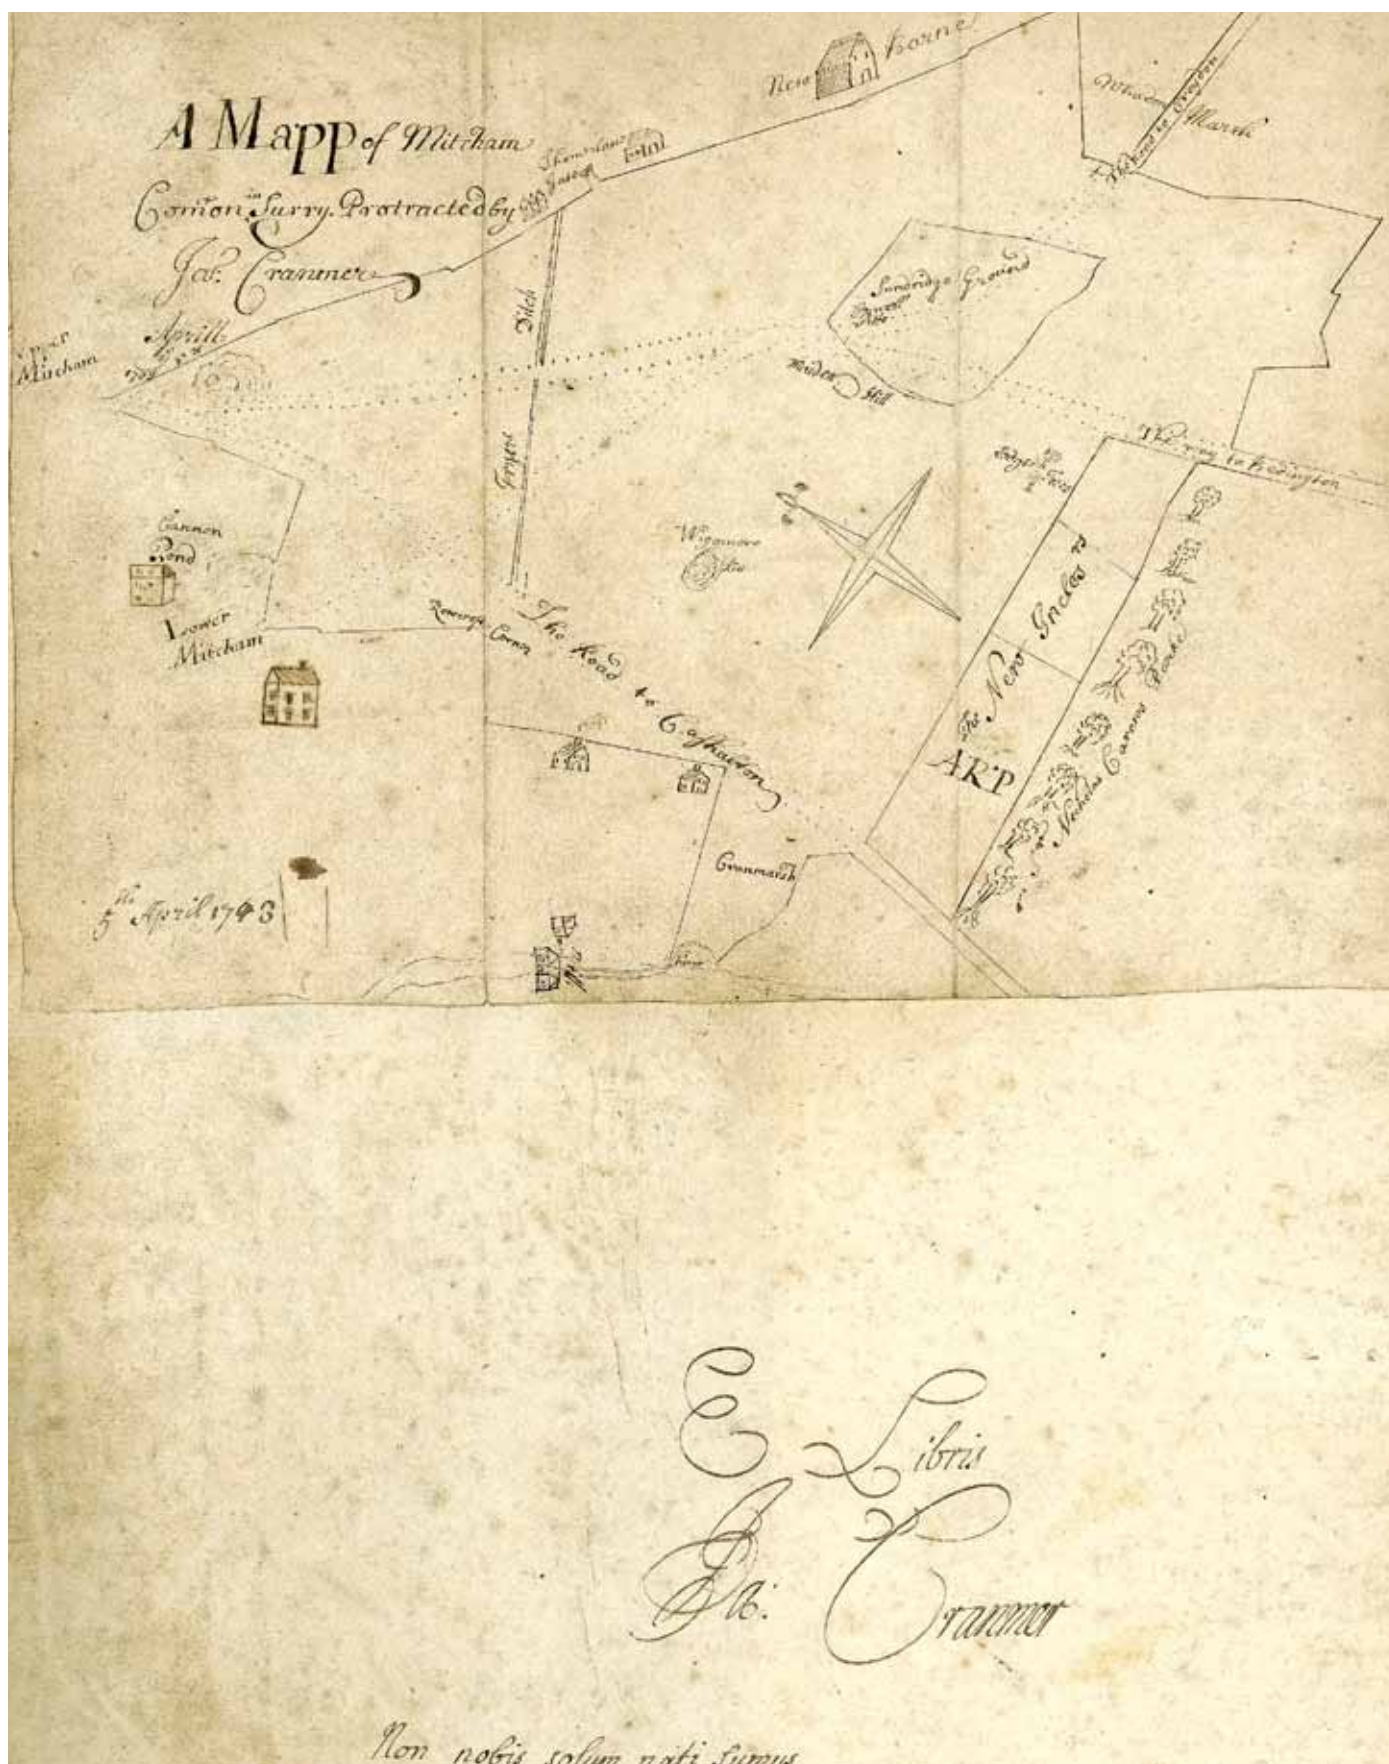 A Mapp of Mitcham
Comon in Surry. Protracted by
Ja: Cranmer
Aprill
Upper
Mitcham
New Barne
Marsh
The Road to Croydon
Sundridge Ground
Hill
Ditch
Fryers
The way to Bedington
Cannon
Pond
Lower
Mitcham
Wigmore
Corner
The Road to Cashalton
The New Inclos rs
ARP
Nicholas Carews Parke
5th April 1743
E Libris
Ja: Cranmer
Non nobis solum nati sumus